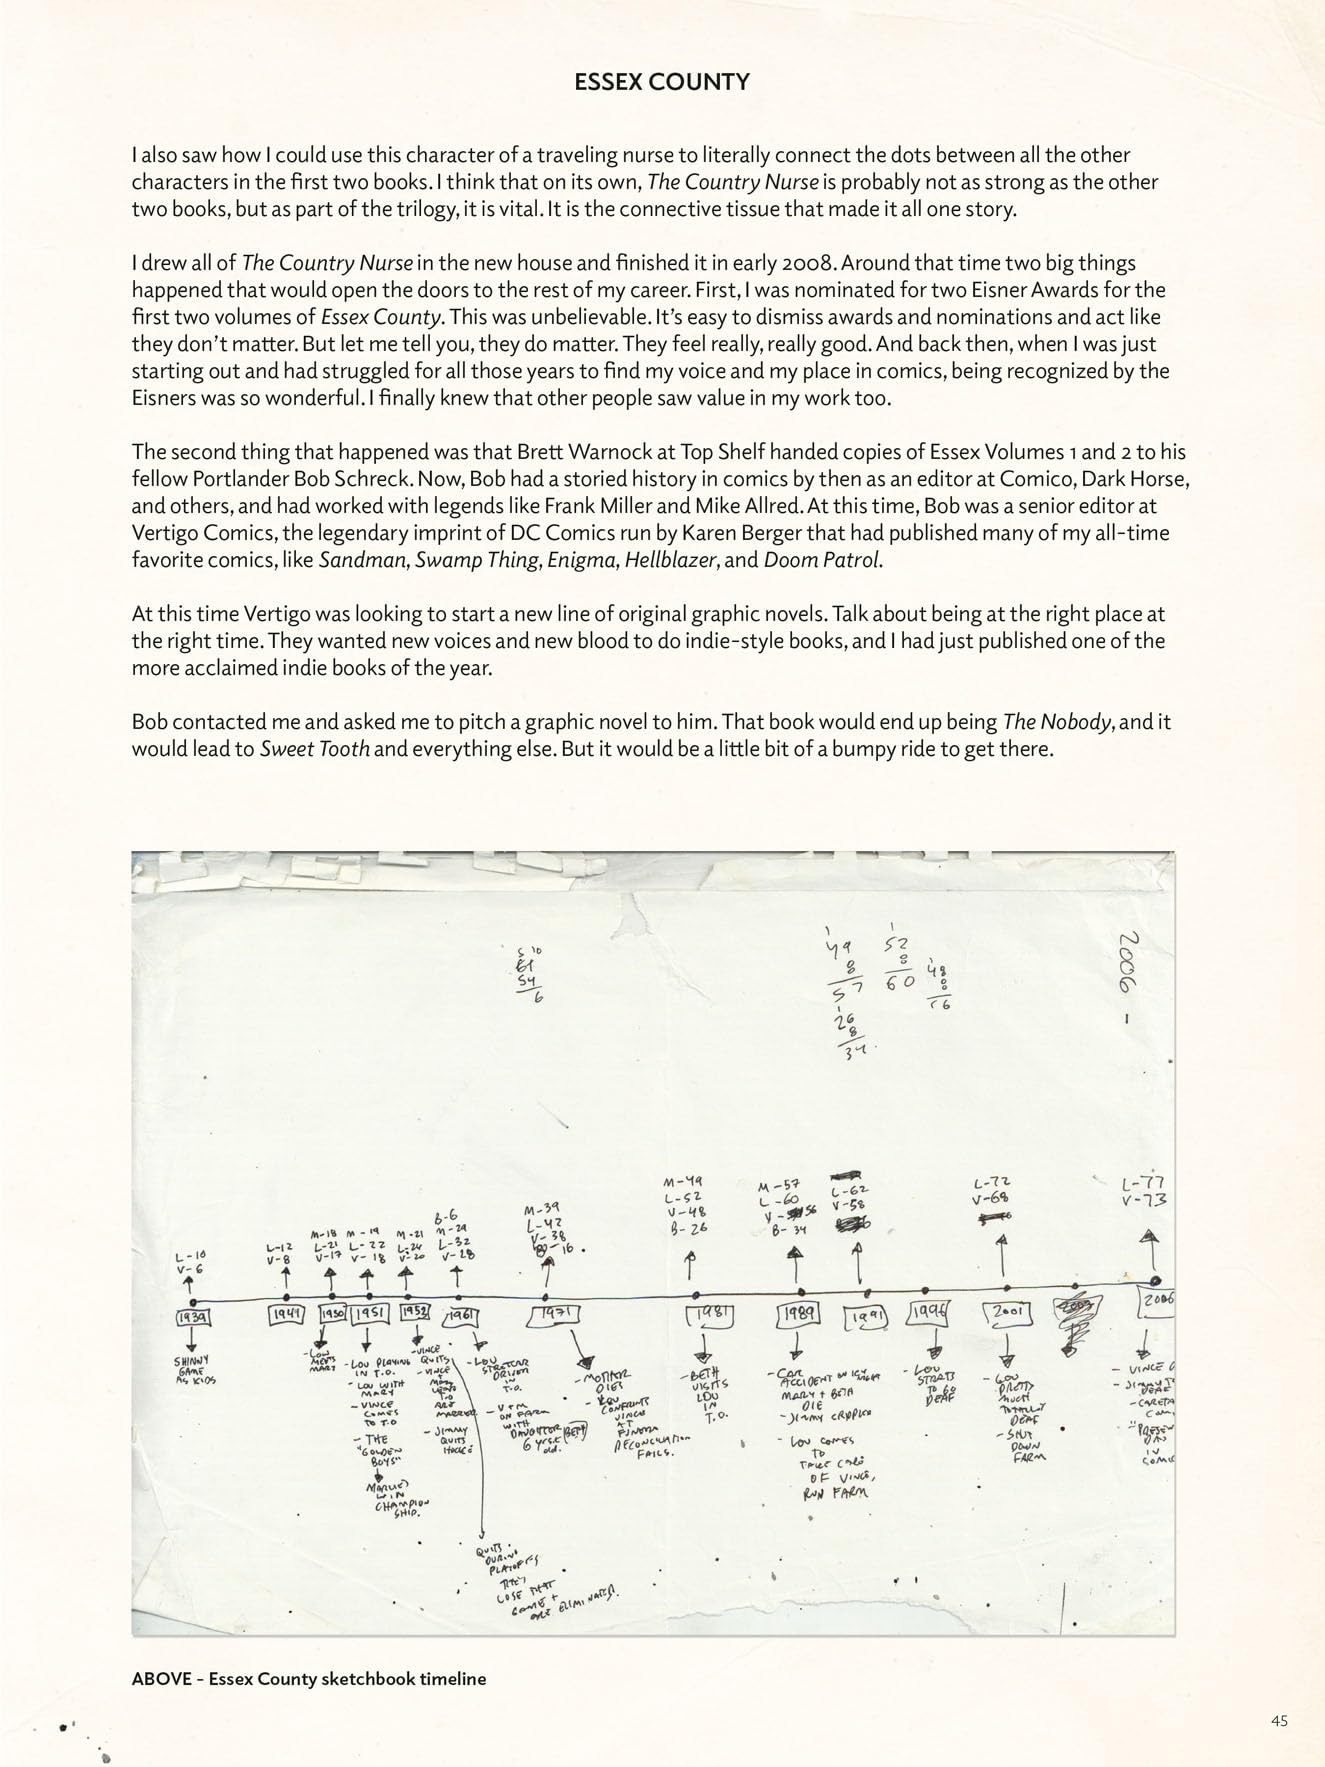 ESSEX COUNTY
I also saw how I could use this character of a traveling nurse to literally connect the dots between all the other
characters in the first two books. I think that on its own, The Country Nurse is probably not as strong as the other
two books, but as part of the trilogy, it is vital. It is the connective tissue that made it all one story.
I drew all of The Country Nurse in the new house and finished it in early 2008. Around that time two big things
happened that would open the doors to the rest of my career. First, I was nominated for two Eisner Awards for the
first two volumes of Essex County. This was unbelievable. It’s easy to dismiss awards and nominations and act like
they don’t matter. But let me tell you, they do matter. They feel really, really good. And back then, when I was just
starting out and had struggled for all those years to find my voice and my place in comics, being recognized by the
Eisners was so wonderful. I finally knew that other people saw value in my work too.
The second thing that happened was that Brett Warnock at Top Shelf handed copies of Essex Volumes 1 and 2 to his
fellow Portlander Bob Schreck. Now, Bob had a storied history in comics by then as an editor at Comico, Dark Horse,
and others, and had worked with legends like Frank Miller and Mike Allred. At this time, Bob was a senior editor at
Vertigo Comics, the legendary imprint of DC Comics run by Karen Berger that had published many of my all-time
favorite comics, like Sandman, Swamp Thing, Enigma, Hellblazer, and Doom Patrol.
At this time Vertigo was looking to start a new line of original graphic novels. Talk about being at the right place at
the right time. They wanted new voices and new blood to do indie-style books, and I had just published one of the
more acclaimed indie books of the year.
Bob contacted me and asked me to pitch a graphic novel to him. That book would end up being The Nobody, and it
would lead to Sweet Tooth and everything else. But it would be a little bit of a bumpy ride to get there.
5 10
54
6
1
49
8
57
1
26
8
34
1
52
8
60
48
8
2006 -
L-10
V-6
1939
SHINNY
GAME
AS KIDS
L-12
V-8
1941
M-18
L-21
V-17
1950
- LOU
MEETS
MARY
M - 19
L - 22
V - 18
1951
- LOU PLAYING
IN T.O.
- LOU WITH
MARY
- VINCE
COMES
TO T.O
- THE
"GOLDEN
BOYS"
WIN
CHAMPION
SHIP.
M-21
L-24
V-20
1952
- VINCE
QUITS
- VINCE
+
MARY
T.O
ARE
MARRIED
- JIMMY
QUITS
QUITS
DURING
PLAYOFFS
THEY
LOSE THAT
GAME +
ARE ELIMINATED.
B-6
M-29
L-32
V-28
1961
- LOU
STREETCAR
DRIVER
IN
T.O.
- V+M
ON FARM
WITH
DAUGHTER (BETH)
6 yrs.
old.
M-39
L-42
V-38
16
1971
- MOTHER
DIES
- LOU
CONFRONTS
VINCE
AT
FUNERAL
RECONCILIATION
FAILS.
M-49
L-52
V-48
B-26
1981
- BETH
VISITS
LOU
IN
T.O.
M-57
L-60
V-56
B-34
1989
- CAR
ACCIDENT ON
MARY + BETH
DIE
- JIMMY CRIPPLED
- LOU COMES
TO
TAKE CARE
OF VINCE,
RUN FARM
L-62
V-58
1991
1996
- LOU
STARTS
TO GO
DEAF
L-72
V-68
2001
- LOU
PRETTY
MUCH
TOTALLY
DEAF
- SHUT
DOWN
FARM
L-77
V-73
2006
- VINCE
DEAF
"PRESEN
DAY
IN
COMIC
ABOVE - Essex County sketchbook timeline
45